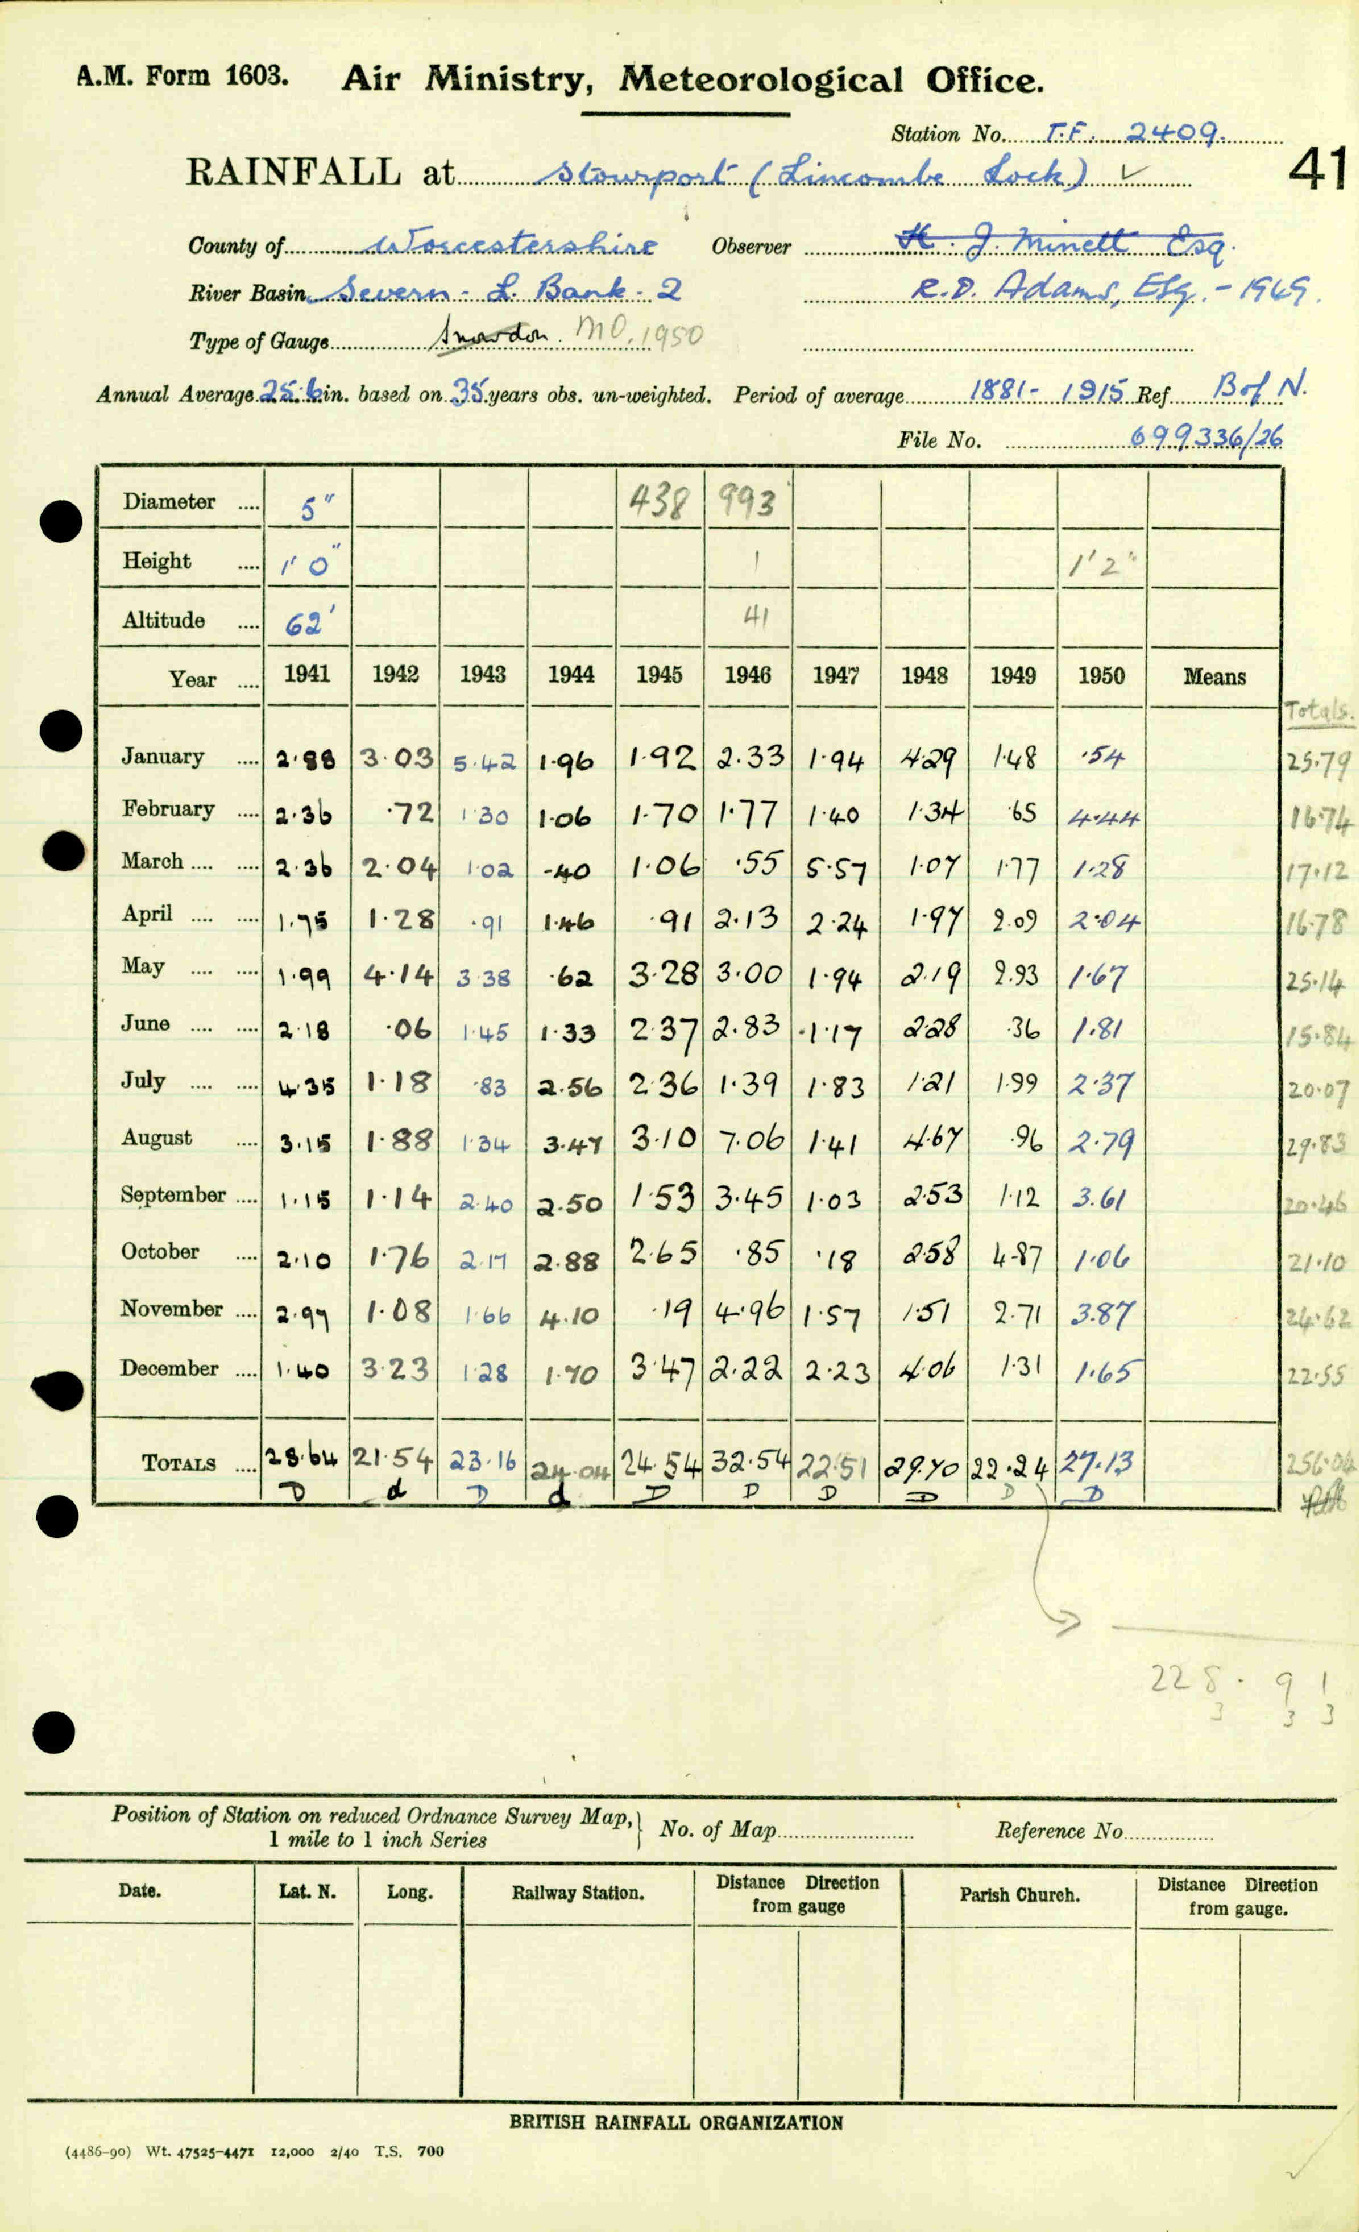 A.M. Form 1603. Air Ministry, Meteorological Office.
Station No. T.F. 2409.
41
RAINFALL at Stourport (Lincombe Lock) ✓
County of Worcestershire Observer H. J. Minett Esq.
River Basin Severn - L. Bank - 2 R.D. Adams, Esq. - 1949.
Type of Gauge Snowdon. MO. 1950
Annual Average 25.6 in. based on 35 years obs. un-weighted. Period of average 1881 - 1915 Ref B of N.
File No. 699336/26
Diameter .... 5" 438 993
Height .... 1' 0" 1 1' 2"
Altitude .... 62' 41
Year .... 1941 1942 1943 1944 1945 1946 1947 1948 1949 1950 Means Totals.
January .... 2.88 3.03 5.42 1.96 1.92 2.33 1.94 4.29 1.48 .54 25.79
February .... 2.36 .72 1.30 1.06 1.70 1.77 1.40 1.34 .65 4.44 16.74
March .... .... 2.36 2.04 1.02 .40 1.06 .55 5.57 1.07 1.77 1.28 17.12
April .... .... 1.75 1.28 .91 1.46 .91 2.13 2.24 1.97 2.09 2.04 16.78
May .... .... 1.99 4.14 3.38 .62 3.28 3.00 1.94 2.19 2.93 1.67 25.14
June .... .... 2.18 .06 1.45 1.33 2.37 2.83 1.17 2.28 .36 1.81 15.84
July .... .... 4.35 1.18 .83 2.56 2.36 1.39 1.83 1.21 1.99 2.37 20.07
August .... 3.15 1.88 1.34 3.47 3.10 7.06 1.41 4.67 .96 2.79 29.83
September .... 1.15 1.14 2.40 2.50 1.53 3.45 1.03 2.53 1.12 3.61 20.46
October .... 2.10 1.76 2.17 2.88 2.65 .85 .18 2.58 4.87 1.06 21.10
November .... 2.97 1.08 1.66 4.10 .19 4.96 1.57 1.51 2.71 3.87 24.62
December .... 1.40 3.23 1.28 1.70 3.47 2.22 2.23 4.06 1.31 1.65 22.55
TOTALS .... 28.64 21.54 23.16 24.04 24.54 32.54 22.51 29.70 22.24 27.13 256.04
D d D d D D D D D D
228.91
3 3 3
Position of Station on reduced Ordnance Survey Map,} No. of Map Reference No
1 mile to 1 inch Series
Date. Lat. N. Long. Railway Station. Distance Direction from gauge Parish Church. Distance Direction from gauge.
BRITISH RAINFALL ORGANIZATION
(4486-90) Wt. 47525-4471 12,000 2/40 T.S. 700